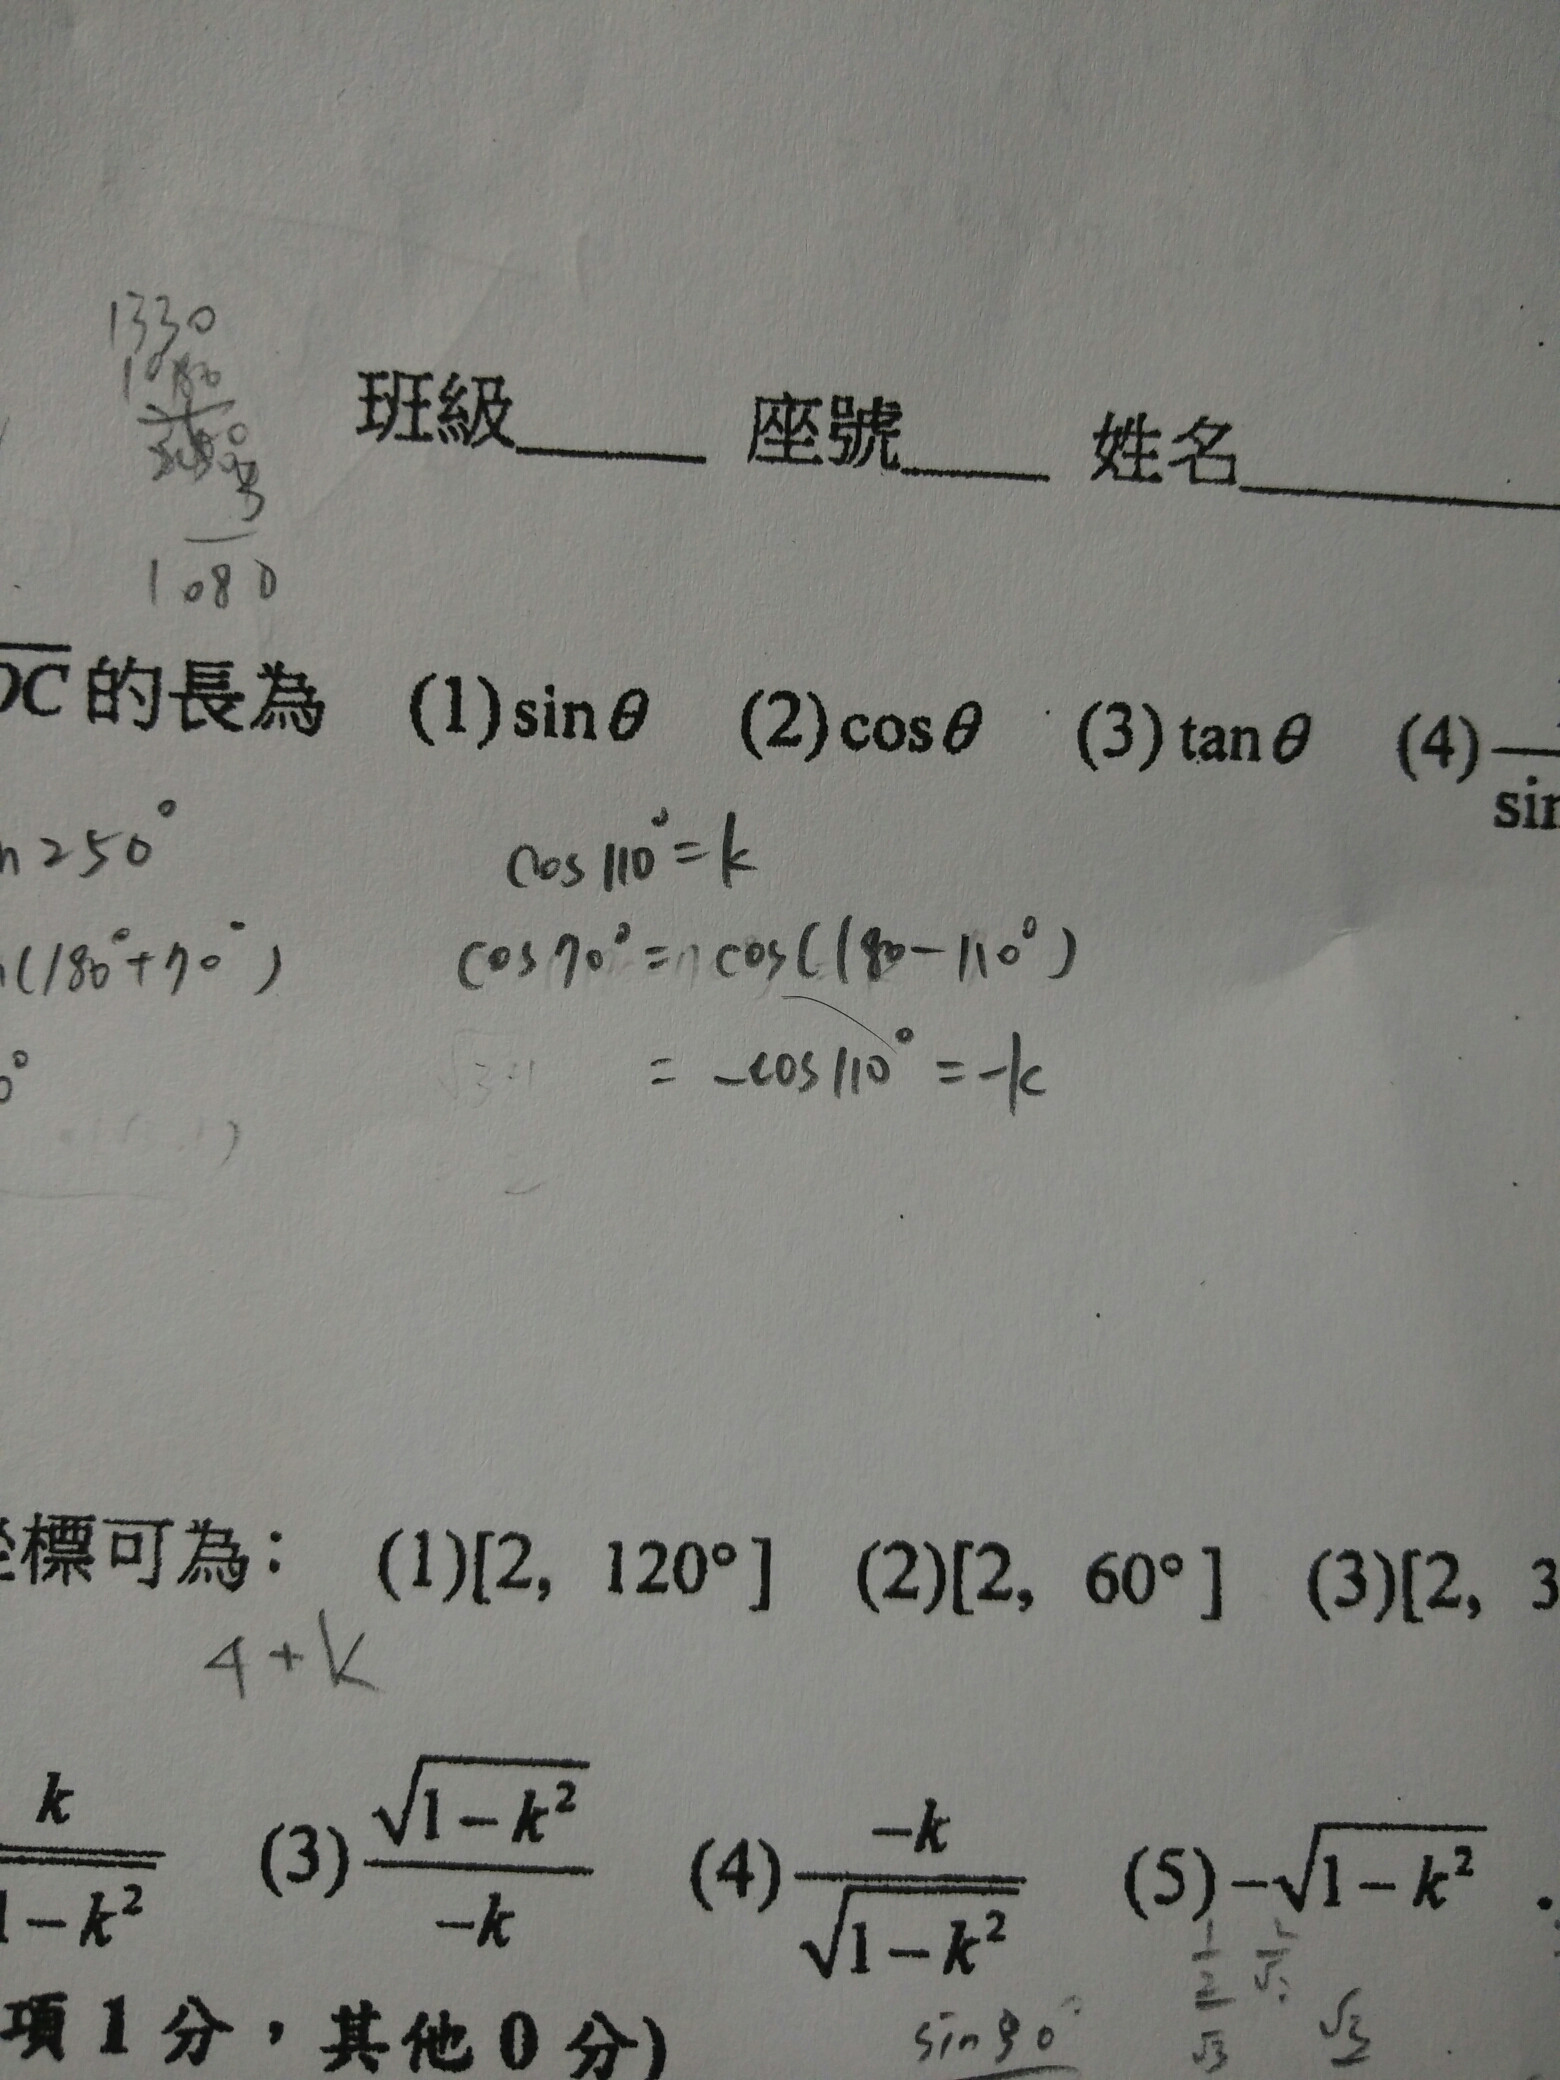 1330
1080
3
1080
班級_____ 座號____ 姓名________
DC 的長為 (1)sinθ (2)cosθ (3)tanθ (4)
sin
n 250°
cos110°=k
(180°+70°)
cos70°=cos(180-110°)
0°
=-cos110°=-k
坐標可為： (1)[2, 120°] (2)[2, 60°] (3)[2, 3
4+k
k/√1-k² (3)√1-k²/-k (4)-k/√1-k² (5)-√1-k² .
項 1 分，其他 0 分)
1/2
√3
√3/2